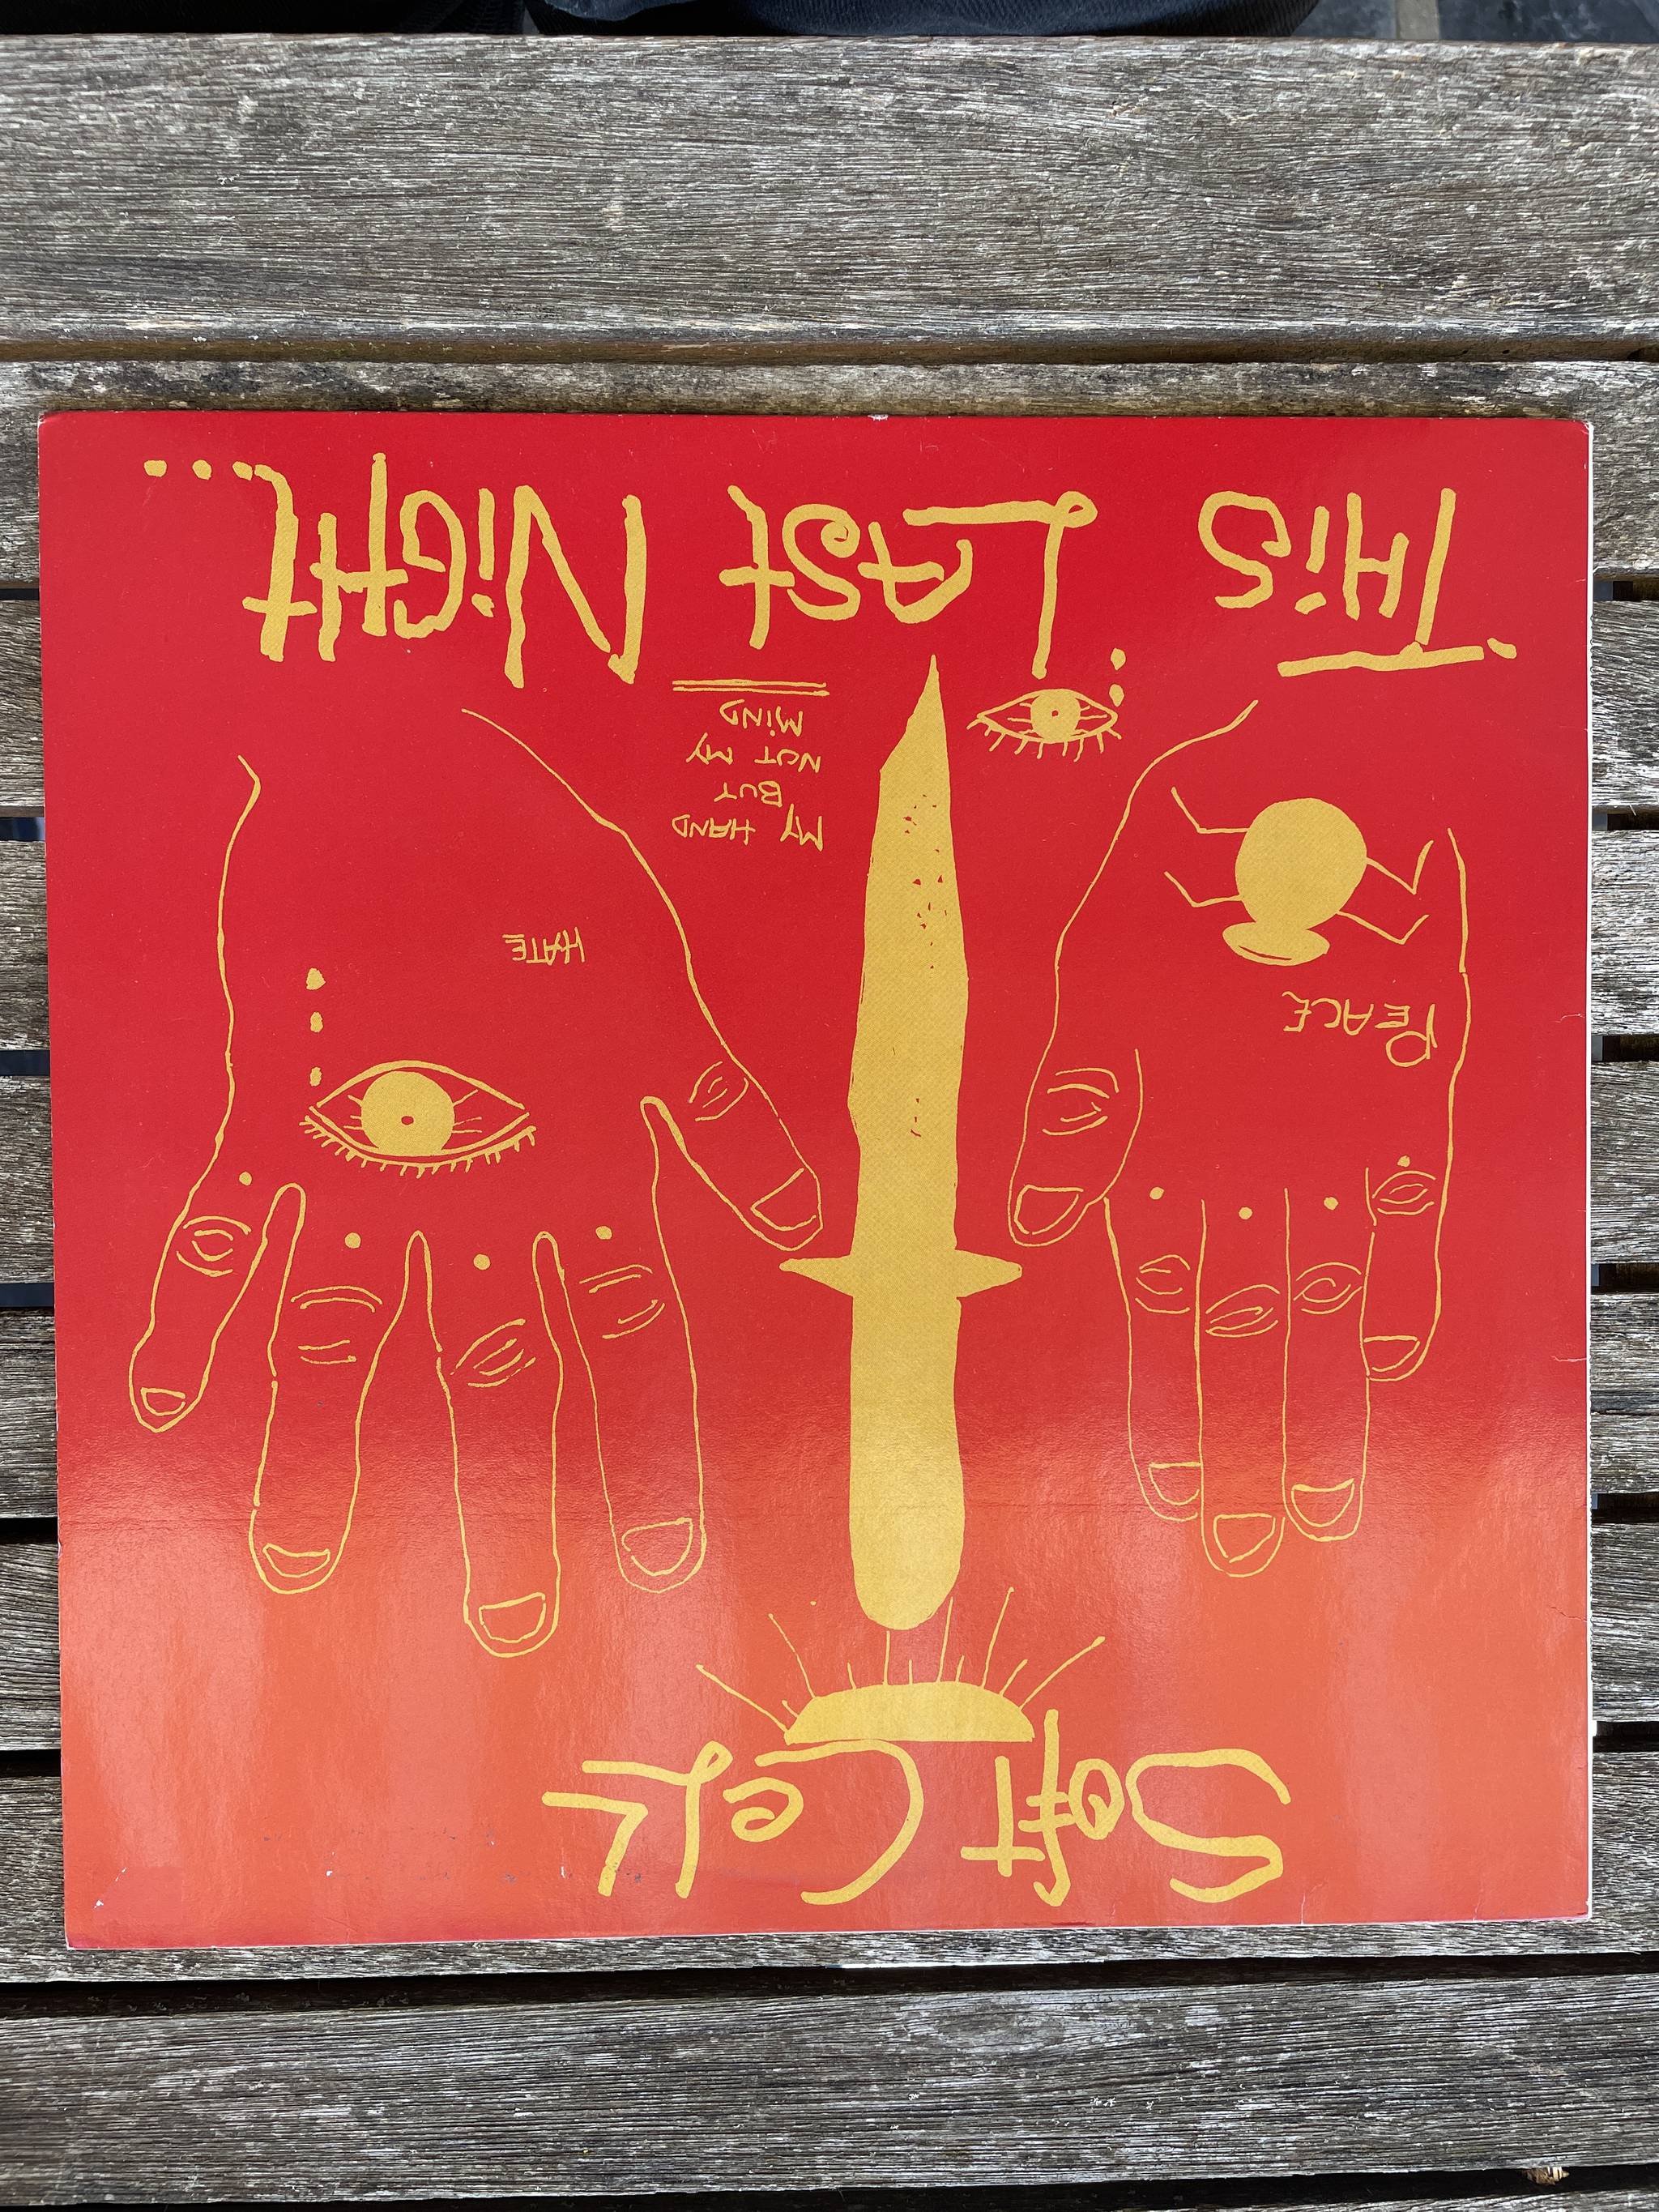 SOft CeLL
PEACE
HATE
MY HAND
BUT
NOT MY
MiND
THiS LASt NiGHt...